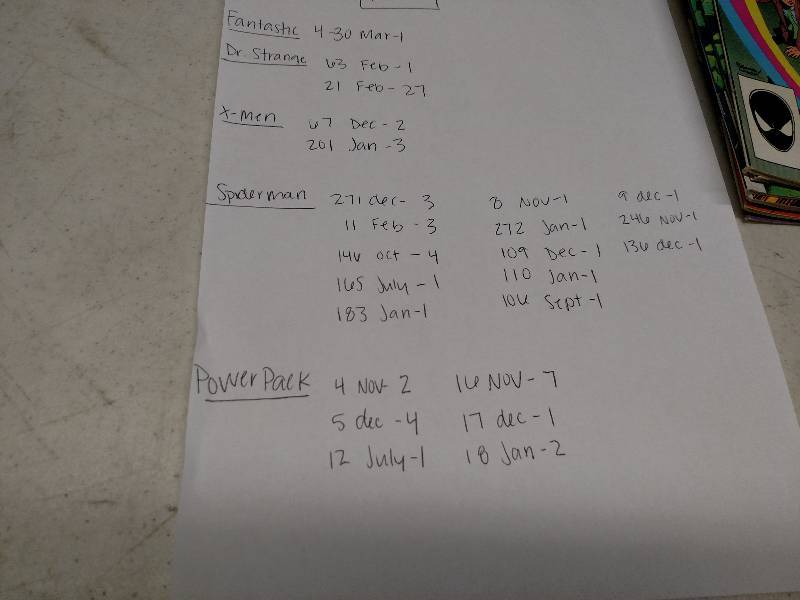 Fantastic 4-30 Mar-1
Dr. Strange 63 Feb - 1
21 Feb - 27
X-men 67 Dec - 2
201 Jan - 3
Spiderman 271 dec - 3 8 Nov-1 9 dec -1
11 Feb - 3 272 Jan-1 246 Nov-1
146 oct - 4 109 Dec - 1 136 dec -1
165 July - 1 110 Jan-1
183 Jan-1 106 Sept -1
Power Pack 4 Nov- 2 16 Nov- 7
5 dec -4 17 dec -1
12 July-1 18 Jan-2